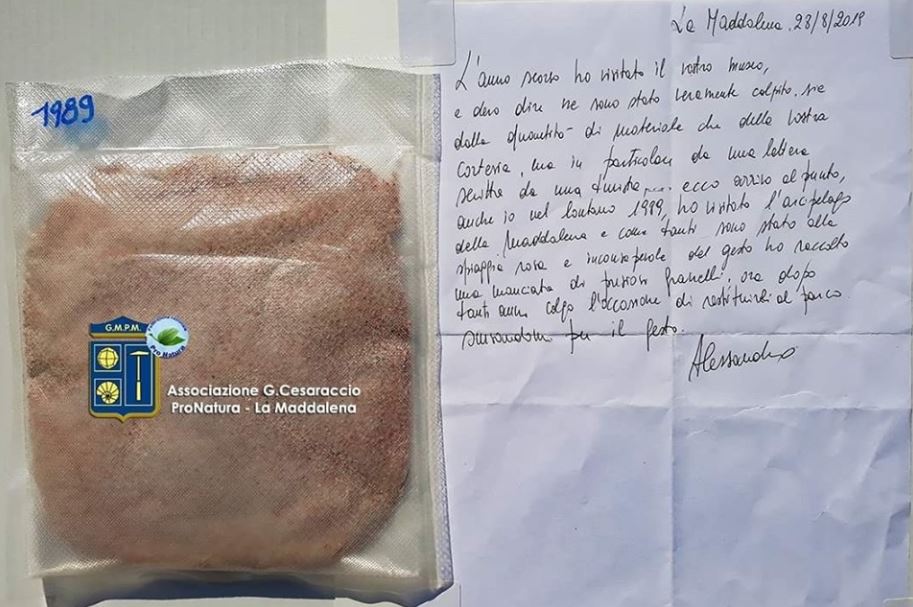 1989
G.M.P.M.
Pro Natura
Associazione G.Cesaraccio
ProNatura - La Maddalena
La Maddalena, 28/8/2019
L'anno scorso ho visitato il vostro museo,
e devo dire ne sono stato veramente colpito, sia
dalla quantità di materiale che della vostra
cortesia, ma in particolare da una lettera
scritta da una turista.... ecco arrivo al punto,
anche io nel lontano 1989, ho visitato l'arcipelago
della Maddalena e come tanti sono stato alla
spiaggia rosa e inconsapevole del gesto ho raccolto
una manciata di preziosi granelli, ora dopo
tanti anni colgo l'occasione di restituirli al parco
scusandomi per il gesto.
Alessandro